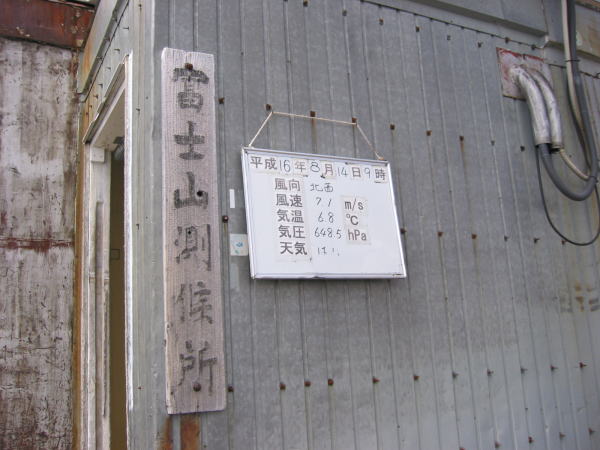 富士山測候所
平成16年8月14日9時
風向 北西
風速 7.1 m/s
気温 6.8 ℃
気圧 648.5 hPa
天気